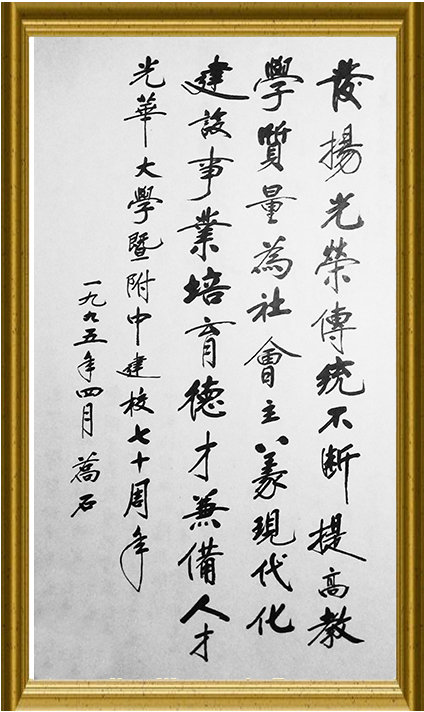 發揚光榮傳統不断提高教
學質量為社會主義現代化
建設事業培育德才兼備人才
光華大學暨附中建校七十周年
一九九五年四月 萬石